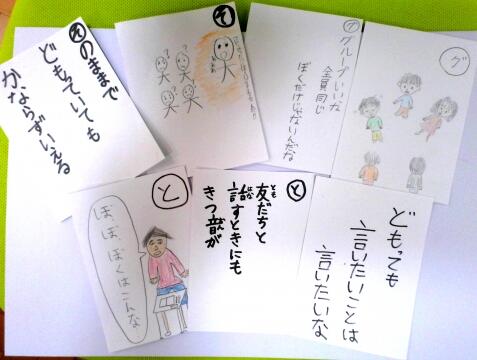 そのままで
どもっていても
かならずいえる
そ
グ
グループいいな
全員同じ
ぼくだけじゃないんだな
グ
と
ぼ、ぼ、ぼくはこんな
と
友だちと
とも
話すときにも
はな
きつ音が
どもっても
言いたいことは
言いたいな